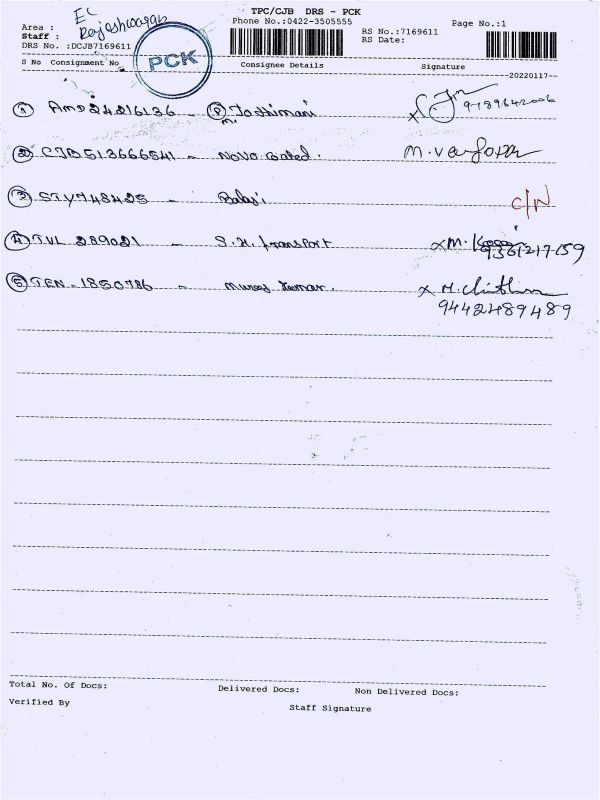 TPC/CJB DRS - PCK
Phone No.:0422-3505555
Page No.:1
EC
Area :
Staff : Rajeshwaran
RS No.:7169611
DRS No. :DCJB7169611
RS Date:
PCK
S No Consignment No Consignee Details Signature
20220117
1 AMD24216136 - P.
2 CJB513666541 - Novo
M.
3 STY748425 - Balaji
C/N
4 TVL 289021 - S.H. Transport
M.
9361217159
5 TEN - 1850786 - Kumar.
M.
9442489489
Total No. Of Docs: Delivered Docs: Non Delivered Docs:
Verified By Staff Signature